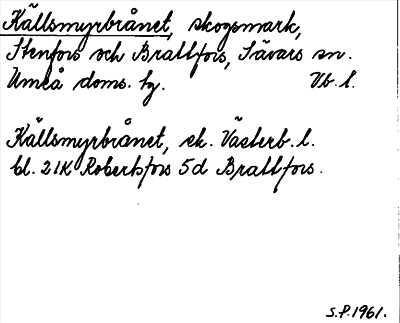 Källsmyrbrånet, skogsmark,
Stenfors och Brattfors, Sävars sn.
Umeå doms. hg. Vb. l.
Källsmyrbrånet, sk. Västerb. l.
bl. 21K Robertsfors 5d Brattfors.
S.P. 1961.